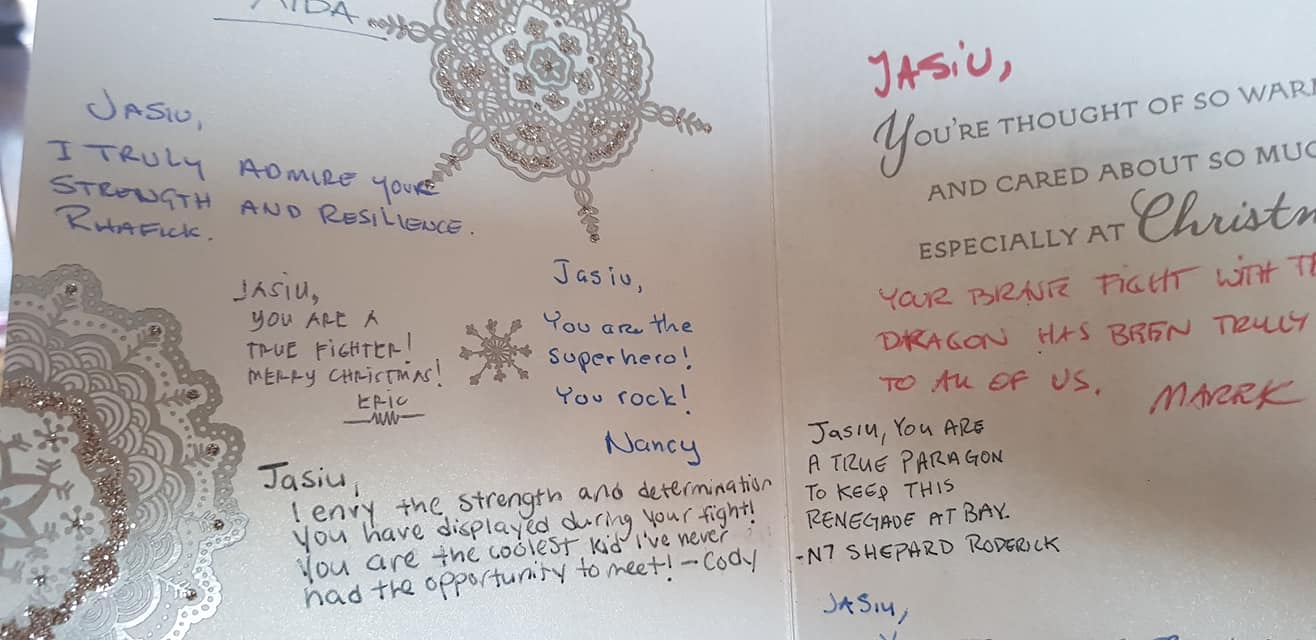 AIDA
JASIU,
I TRULY ADMIRE YOUR
STRENGTH AND RESILIENCE.
RHAFICK.
JASIU,
YOU ARE A
TRUE FIGHTER!
MERRY CHRISTMAS!
ERIC
Jasiu,
You are the
superhero!
You rock!
Nancy
Jasiu,
I envy the strength and determination
you have displayed during your fight!
You are the coolest kid I've never
had the opportunity to meet! - Cody
JASIU,
YOU'RE THOUGHT OF SO
AND CARED ABOUT SO
ESPECIALLY AT
YOUR BRAVE FIGHT WITH
DRAGON HAS BEEN TRULY
TO ALL OF US. MARRK
JASIU, YOU ARE
A TRUE PARAGON
TO KEEP THIS
RENEGADE AT BAY.
-N7 SHEPARD RODERICK
JASIU,